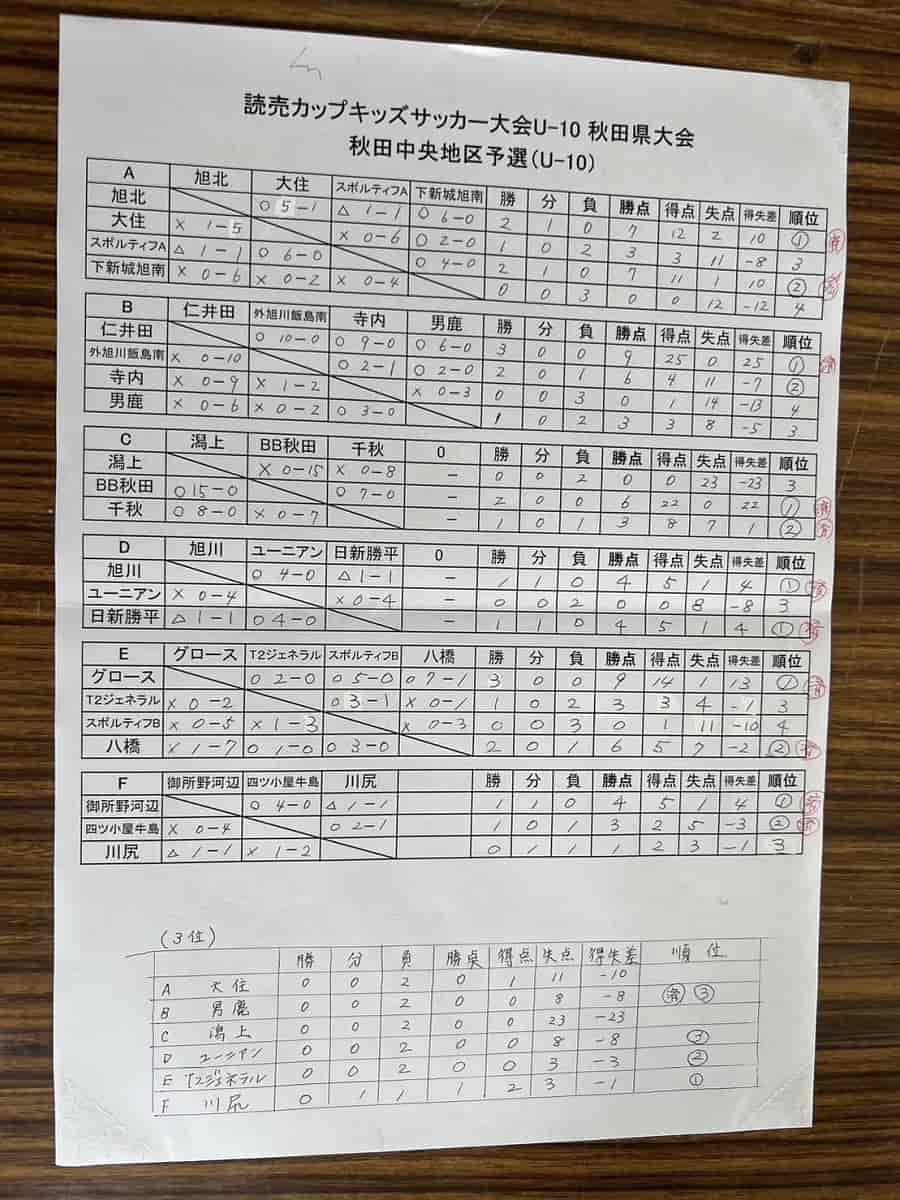 読売カップキッズサッカー大会U-10 秋田県大会
秋田中央地区予選(U-10)
A 旭北 大住 スポルティフA 下新城旭南 勝 分 負 勝点 得点 失点 得失差 順位
旭北 ○ 5-1 △ 1-1 ○ 6-0 2 1 0 7 12 2 10 ①
大住 × 1-5 × 0-6 ○ 2-0 1 0 2 3 3 11 -8 3
スポルティフA △ 1-1 ○ 6-0 ○ 4-0 2 1 0 7 11 1 10 ②
下新城旭南 × 0-6 × 0-2 × 0-4 0 0 3 0 0 12 -12 4
B 仁井田 外旭川飯島南 寺内 男鹿 勝 分 負 勝点 得点 失点 得失差 順位
仁井田 ○ 10-0 ○ 9-0 ○ 6-0 3 0 0 9 25 0 25 ①
外旭川飯島南 × 0-10 ○ 2-1 ○ 2-0 2 0 1 6 4 11 -7 ②
寺内 × 0-9 × 1-2 × 0-3 0 0 3 0 1 14 -13 4
男鹿 × 0-6 × 0-2 ○ 3-0 1 0 2 3 3 8 -5 3
C 潟上 BB秋田 千秋 0 勝 分 負 勝点 得点 失点 得失差 順位
潟上 × 0-15 × 0-8 - 0 0 2 0 0 23 -23 3
BB秋田 ○ 15-0 ○ 7-0 - 2 0 0 6 22 0 22 ①
千秋 ○ 8-0 × 0-7 - 1 0 1 3 8 7 1 ②
D 旭川 ユーニアン 日新勝平 0 勝 分 負 勝点 得点 失点 得失差 順位
旭川 ○ 4-0 △ 1-1 - 1 1 0 4 5 1 4 ①
ユーニアン × 0-4 × 0-4 - 0 0 2 0 0 8 -8 3
日新勝平 △ 1-1 ○ 4-0 - 1 1 0 4 5 1 4 ①
E グロース T2ジェネラル スポルティフB 八橋 勝 分 負 勝点 得点 失点 得失差 順位
グロース ○ 2-0 ○ 5-0 ○ 7-1 3 0 0 9 14 1 13 ① 済
T2ジェネラル × 0-2 ○ 3-1 × 0-1 1 0 2 3 3 4 -1 3
スポルティフB × 0-5 × 1-3 × 0-3 0 0 3 0 1 11 -10 4
八橋 × 1-7 ○ 1-0 ○ 3-0 2 0 1 6 5 7 -2 ②
F 御所野河辺 四ツ小屋牛島 川尻 勝 分 負 勝点 得点 失点 得失差 順位
御所野河辺 ○ 4-0 △ 1-1 1 1 0 4 5 1 4 ①
四ツ小屋牛島 × 0-4 ○ 2-1 1 0 1 3 2 5 -3 ②
川尻 △ 1-1 × 1-2 0 1 1 1 2 3 -1 3
(3位)
勝 分 負 勝点 得点 失点 得失差 順位
A 大住 0 0 2 0 1 11 -10
B 男鹿 0 0 2 0 0 8 -8 済 ③
C 潟上 0 0 2 0 0 23 -23
D ユーニアン 0 0 2 0 0 8 -8 ③
E T2ジェネラル 0 0 2 0 0 3 -3 ②
F 川尻 0 1 1 1 2 3 -1 ①